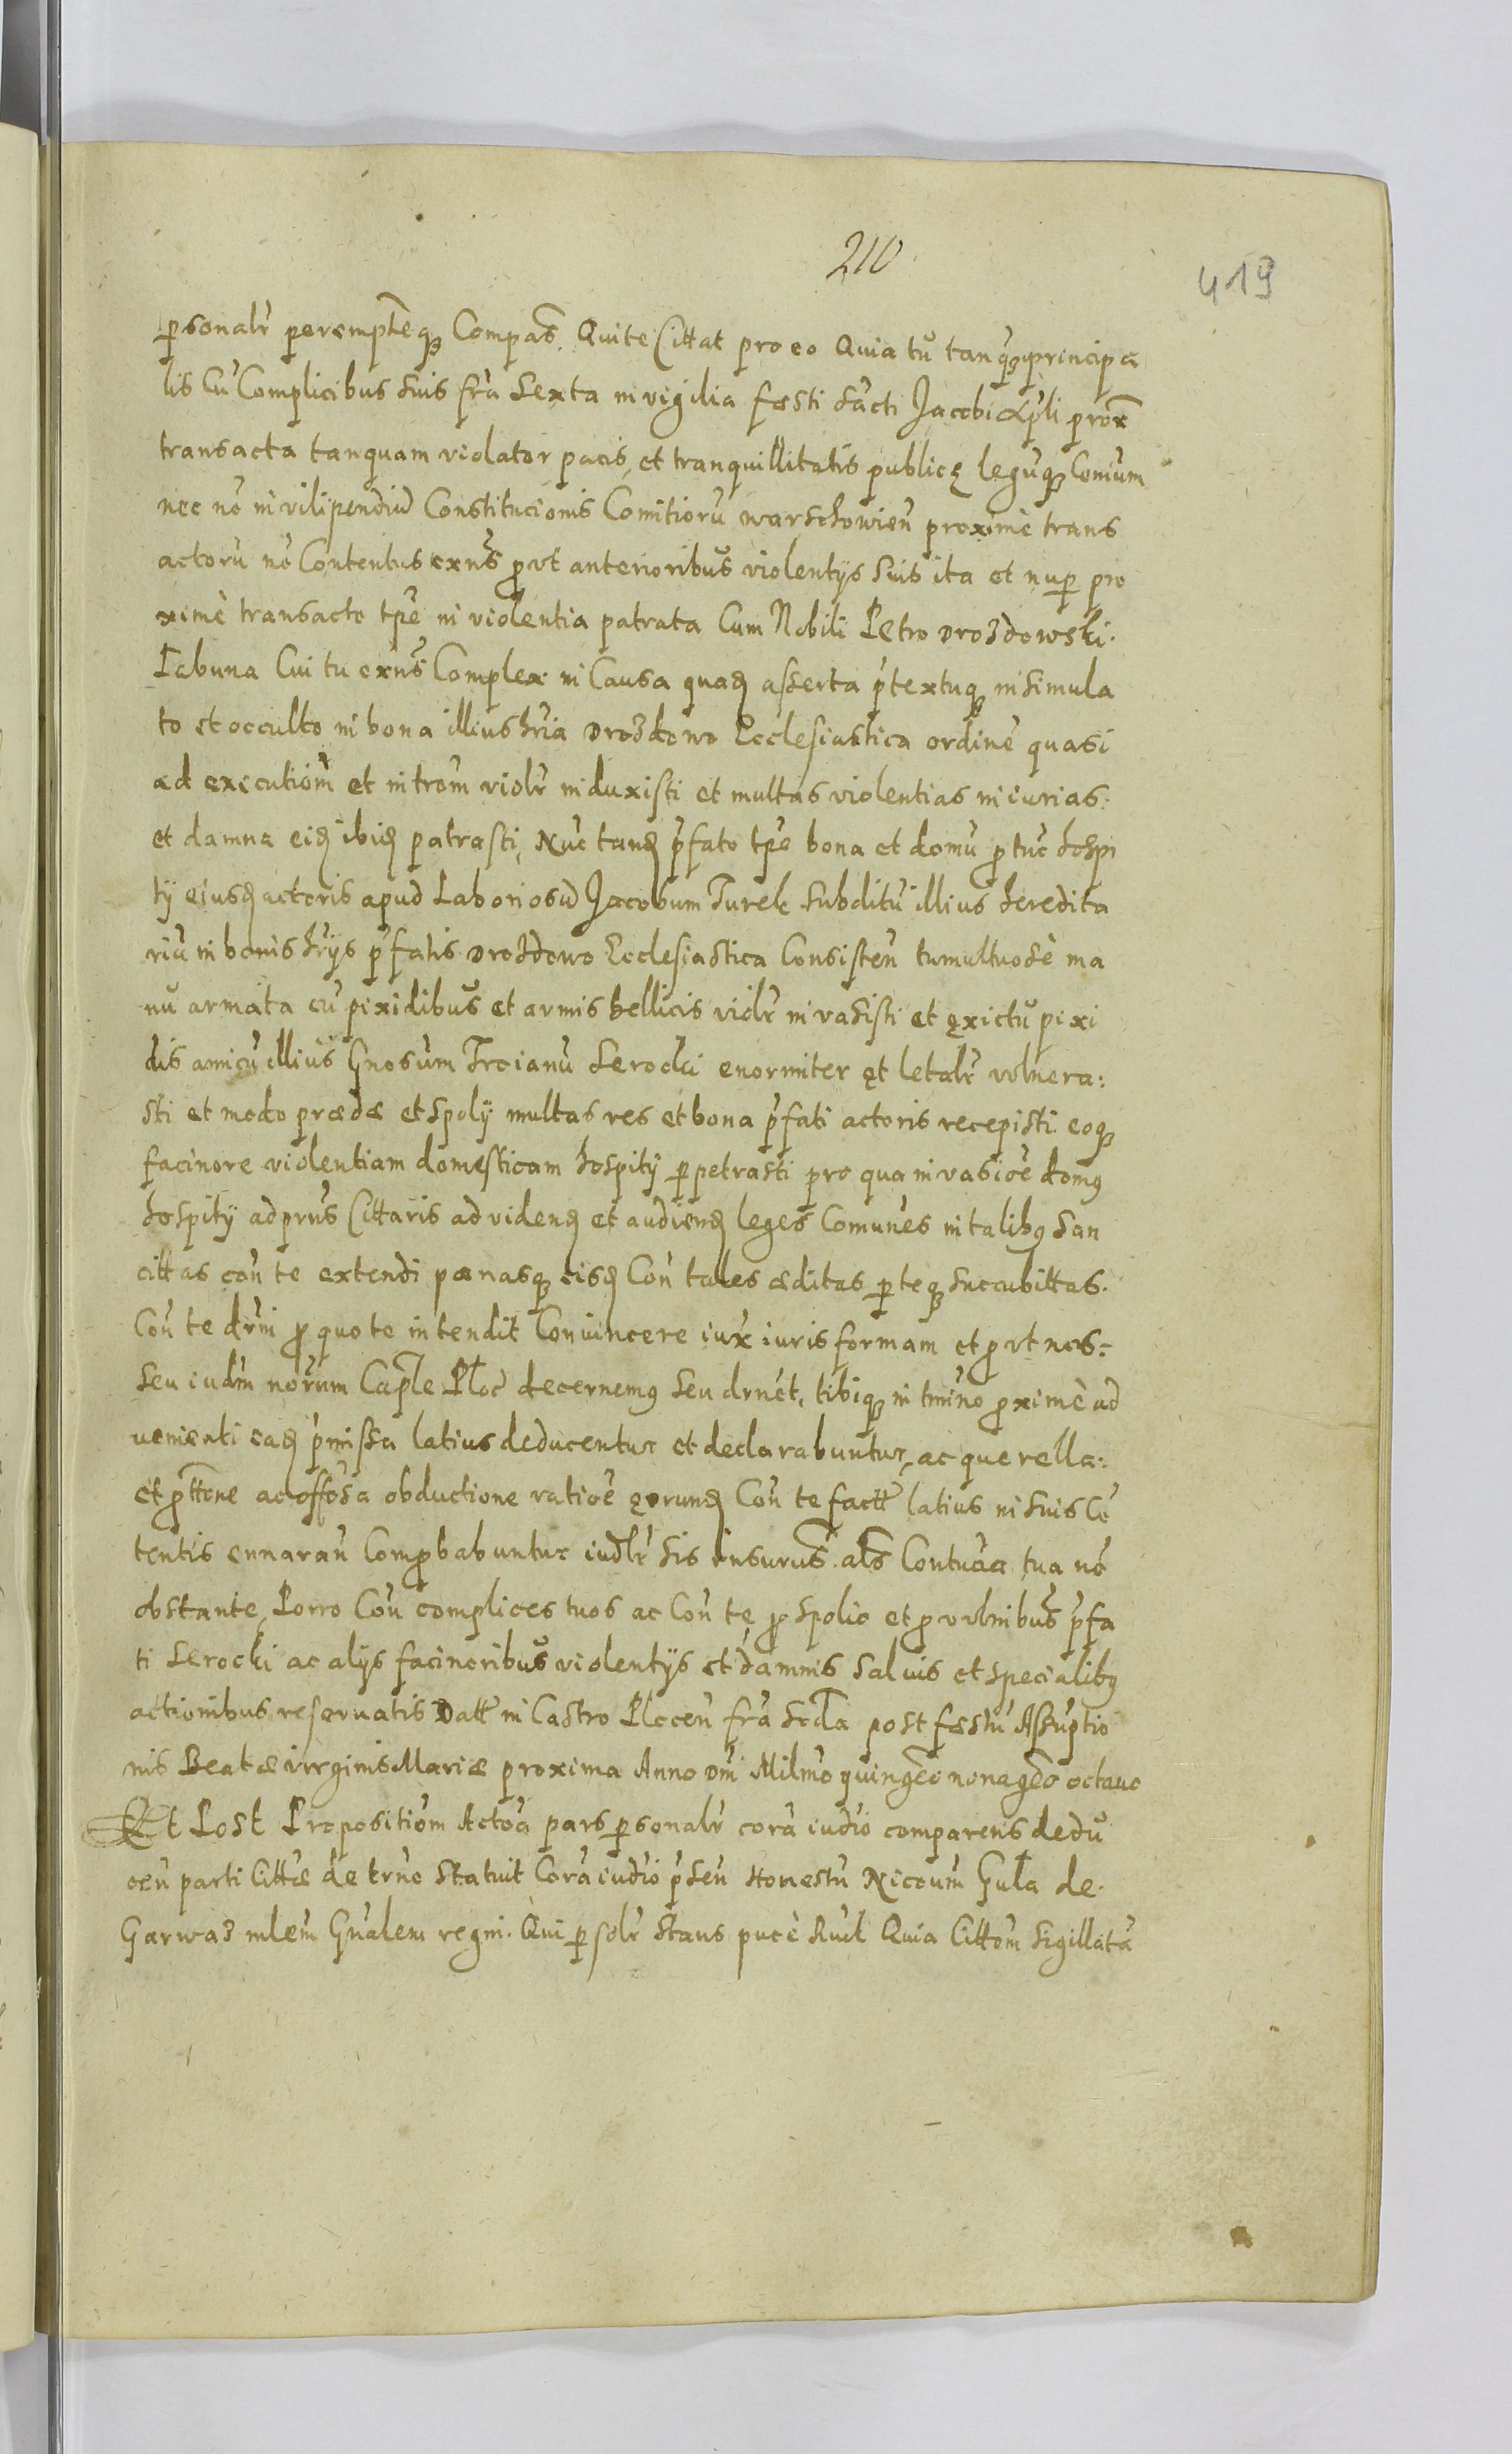 210
419
psonalr peremptieqꝫ Compas. Qui te Cittat pro eo Quia tu tanqꝫ principa
lis Cu Complicibus suis fra Sexta in vigilia festi Sacti Jacobi Apli prox
transacta tanquam violator pacis et tranquillitatis publicę leguqꝫ Comum
nec no in vilipendiu Constitucionis Comitioru warschowien proxime trans
actoru no Contentus exns put anterioribus violentijs suis ita et nup pro
xime transacto tpe in violentia patrata Cum Nobili Petro Drozdowski
Labuna Cui tu exns Complex in Causa quadꝫ asserta ptextuqꝫ in simula
to et occulto in bona illius hria Drozdowo Ecclesiastica ordine quasi
ad executiom et introm violr induxisti et multas violentias iniurias
et damna eidꝫ ibidꝫ patrasti, Nuc tandꝫ pfato tpe bona et domu p tuc hospi
tij eiusdꝫ actoris apud Laboriosu Jacobum Turek Subditu illius heredita
riu in bonis hrijs pfatis Drozdowo Ecclesiastica Consisten tumultuose ma
nu armata cu pixidibus et armis bellicis violr invasisti et ex ictu pixi
dis amicu illius Gnosum Troianu Serocki enormiter et letalr vulnera:
sti et modo prædæ et spolij multas res et bona pfati actoris recepisti eoqꝫ
facinore violentiam domesticam hospitij ppetrasti pro qua invasioe domꝯ
hospitij ad prns Cittaris ad videndꝫ et audiendꝫ leges Comunes in talibꝯ San
cittas con te extendi pænasqꝫ eisdꝫ Con tales æditas p teqꝫ succubittas.
Con te drni p quo te intendit Convincere iux iuris formam et put nos:
seu iudm norum Caple Ploc decernemꝯ seu drnet, tibiqꝫ in tmino pxime ad
venienti eadꝫ pmissa latius deducentur et declarabuntur, ac querella:
et pttone ac offosa obductione ratioe eorundꝫ Con te factt latius in suis Co
tentis ennaran Compbabuntur iudlr sis insurus als Contuaa tua no
obstante, Porro Con complices tuos ac Con te p spolio et p vulnibus pfa
ti Serocki ac alijs facinoribus violentijs et damnis salvis et specialibꝯ
actionibus reservatis Datt in Castro Plocen fra scda post festu Assuptio
nis Beatæ virginis Mariæ proxima Anno Dni Milmo quingeo nonageo octavo
Et Post Propositiom Actoa pars psonalr cora iudio comparens dedu
cen parti Cittæ de trno statuit Cora iudio psen Honestu Nicoum Gula de
Garwaz mlem Gnalem regni. Qui psolr stans puce Rucl Quia Cittom sigillata